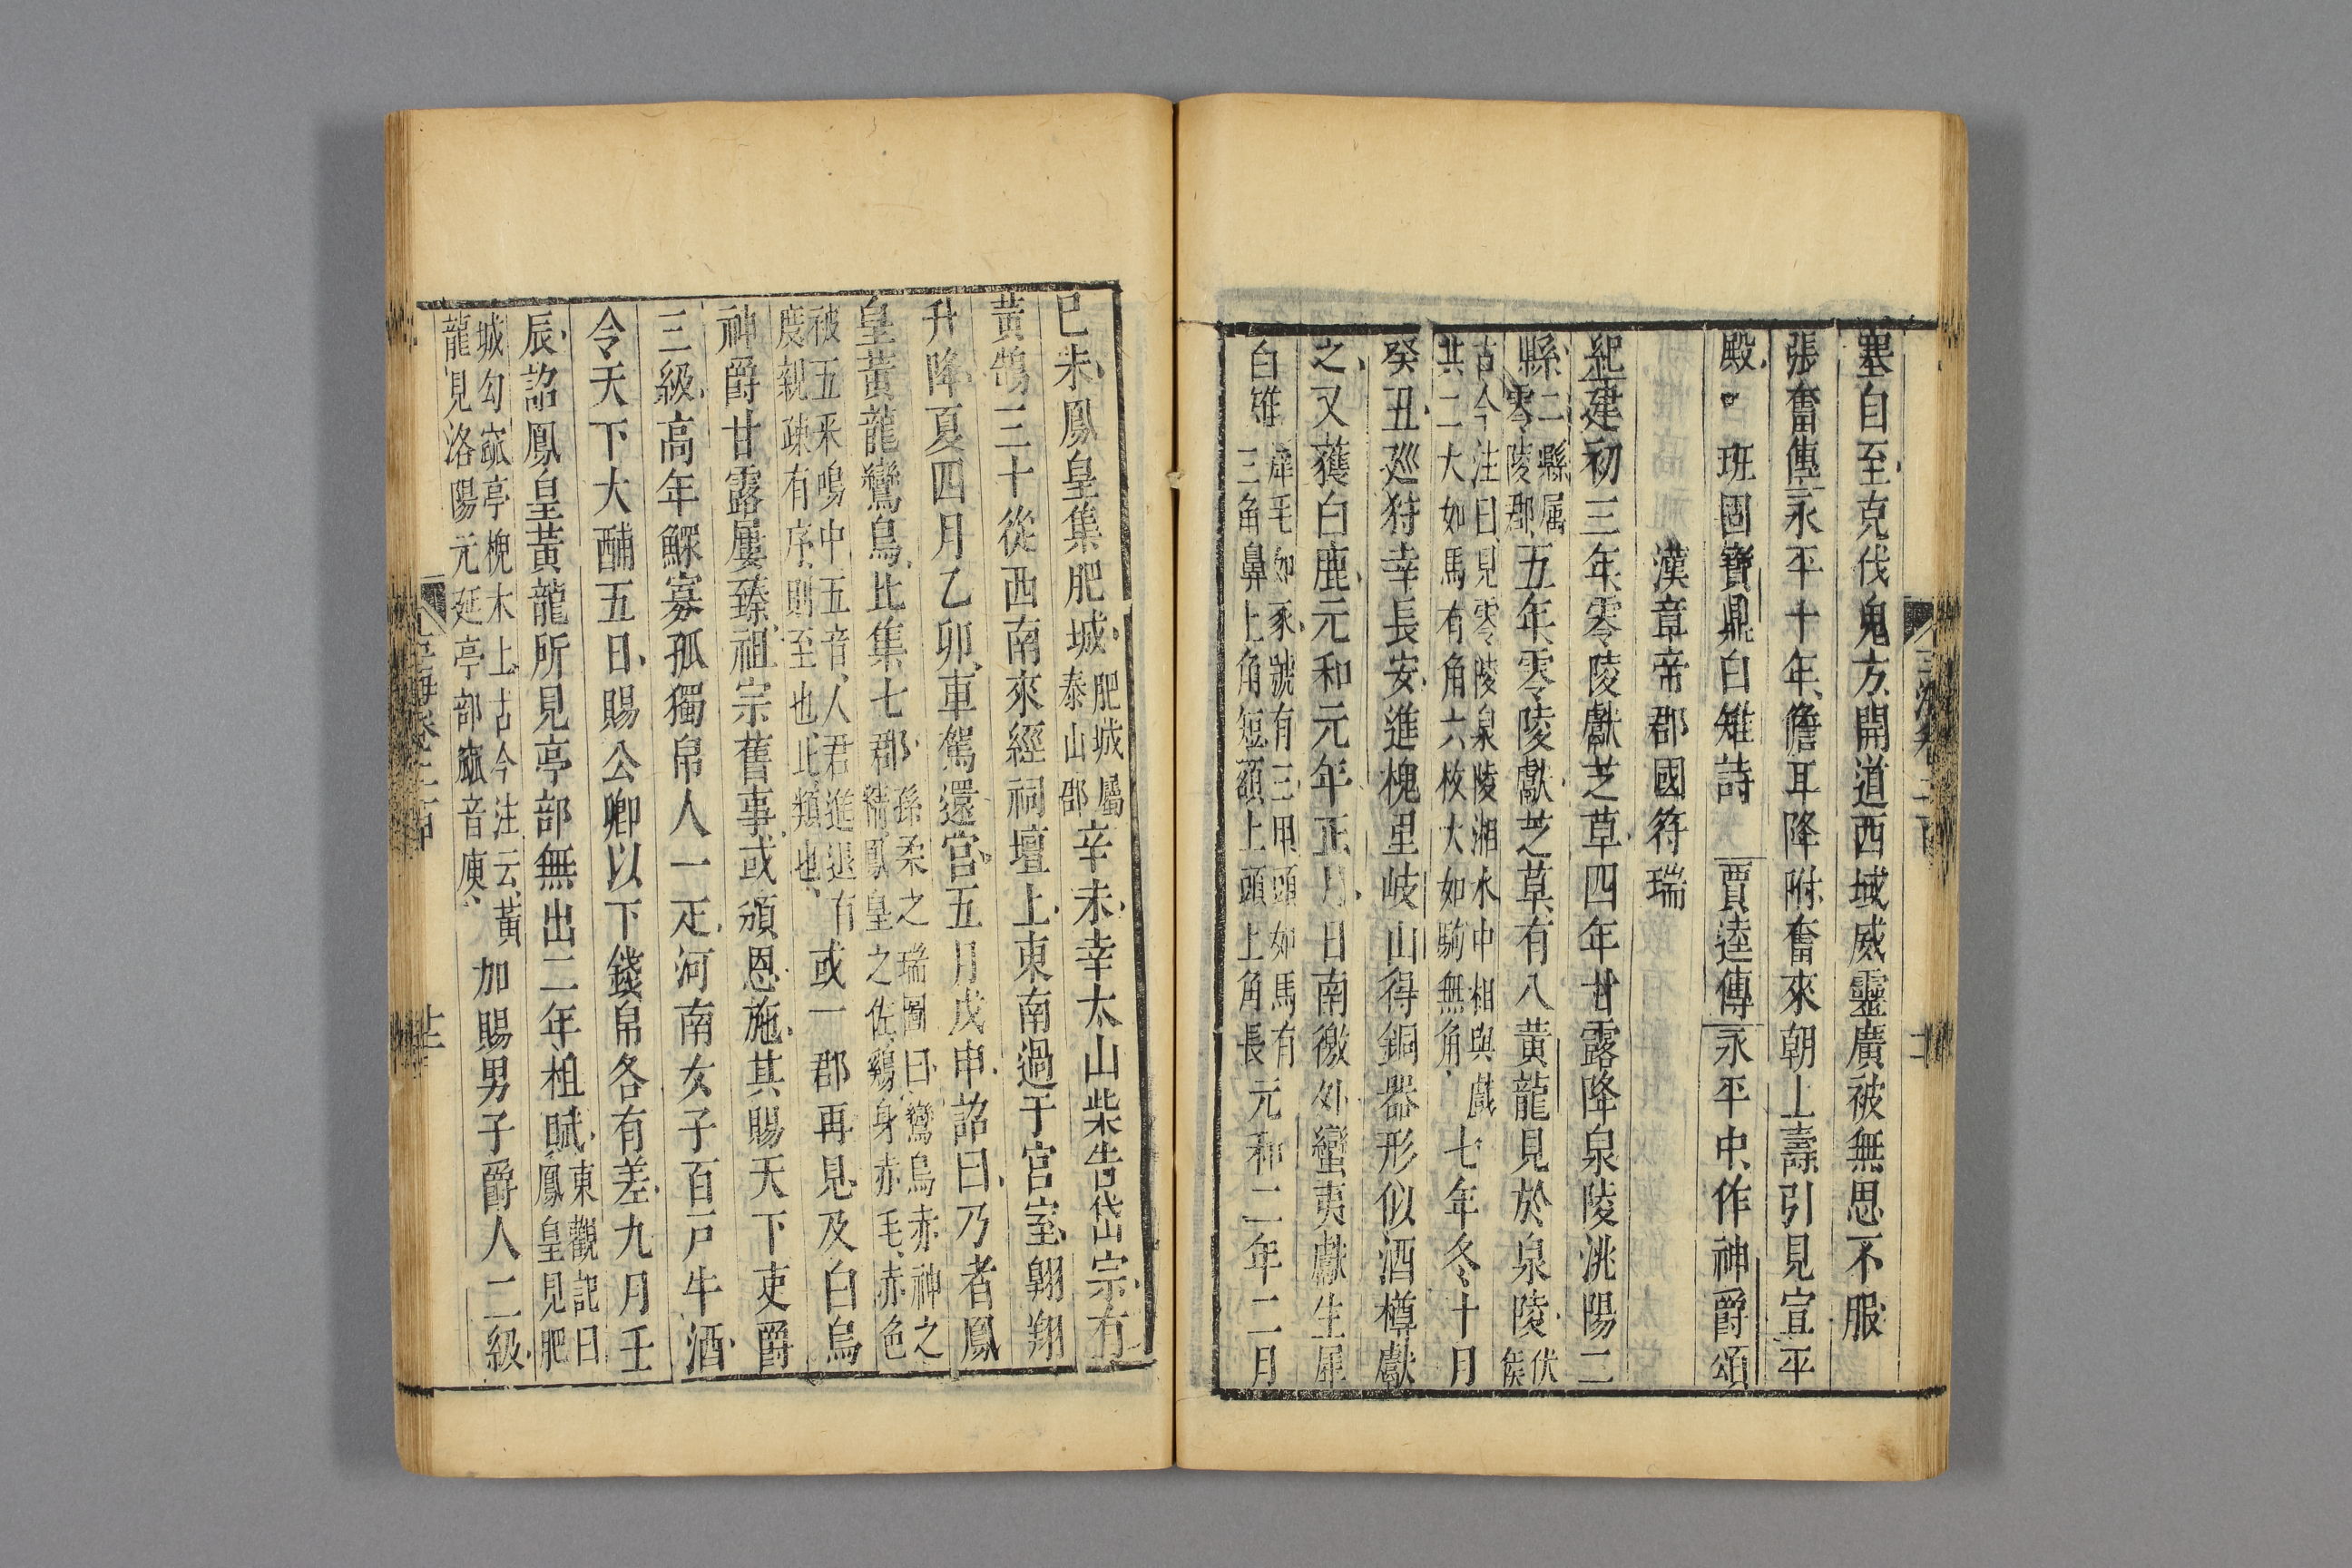 塞自至克伐鬼方開道西域威靈廣被無思不服
張奮傳永平十年儋耳降附奮來朝上壽引見宣平
殿 班固寶鼎白雉詩 賈逵傳永平中作神爵頌
漢章帝郡國符瑞
紀建初三年零陵獻芝草四年甘露降泉陵洮陽二
縣二縣屬零陵郡五年零陵獻芝草有八黃龍見於泉陵伏侯
古今注曰見零陵泉陵湘水中相與戲其二大如馬有角六枚大如駒無角七年冬十月
癸丑巡狩幸長安進槐里岐山得銅器形似酒樽獻
之又獲白鹿元和元年正月日南徼外蠻夷獻生犀
白雉犀毛如豕號有三甲頭如馬有三角鼻上角短額上頭上角長元和二年二月
巳未鳳皇集肥城肥城屬泰山郡辛未幸太山柴告岱宗有
黃鵠三十從西南來經祠壇上東南過于宮室翱翔
升降夏四月乙卯車駕還宮五月戊申詔曰乃者鳳
皇黃龍鸞鳥比集七郡孫柔之瑞圖曰鸞鳥赤神之精鳳皇之佐鷄身赤毛赤色
被五釆鳴中五音人君進退有度親疎有序則至也此類也或一郡再見及白烏
神爵甘露屢臻祖宗舊事或頒恩施其賜天下吏爵
三級高年鰥寡孤獨帛人一疋河南女子百戸牛酒
令天下大酺五日賜公卿以下錢帛各有差九月壬
辰詔鳳皇黃龍所見亭部無出二年租賦東觀記曰鳳皇見肥
城句窳亭槐木上古今注云黃龍見洛陽元延亭部窳音庾加賜男子爵人二級